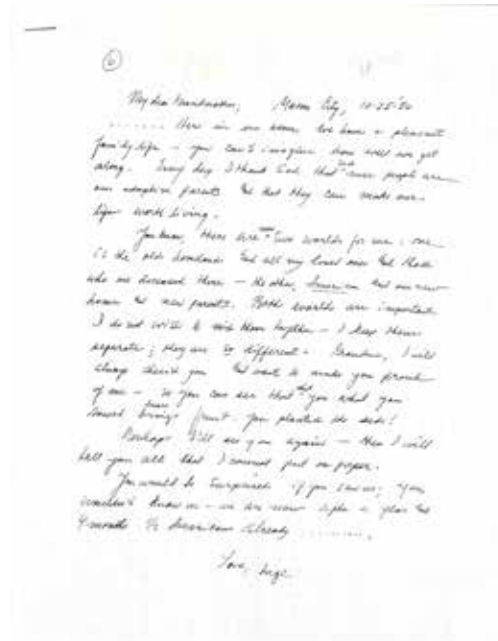 6
My dear Grandmother, Mason City, 10-25-'50
........ Here in our home we have a pleasant
family life – you can't imagine how well we get
along. Every day I thank God that such nice people are
our adoptive parents and that they can make our
life worth living.
You know, there are now two worlds for me: one
is the old homeland and all my loved ones and those
who are deceased there – the other, America and our new
home and new parents. Both worlds are important
I do not wish to mix them together – I keep them
separate; they are so different. Grandma, I will
always cherish you and want to make you proud
of me – so you can see that you what you
sowed bears fruit. You planted the seeds!
Perhaps I'll see you again – then I will
tell you all that I cannot put on paper.
You would be surprised if you saw us; you
wouldn't know us – we are now after a year and
4 months ½ American already ..........
Love, Inge